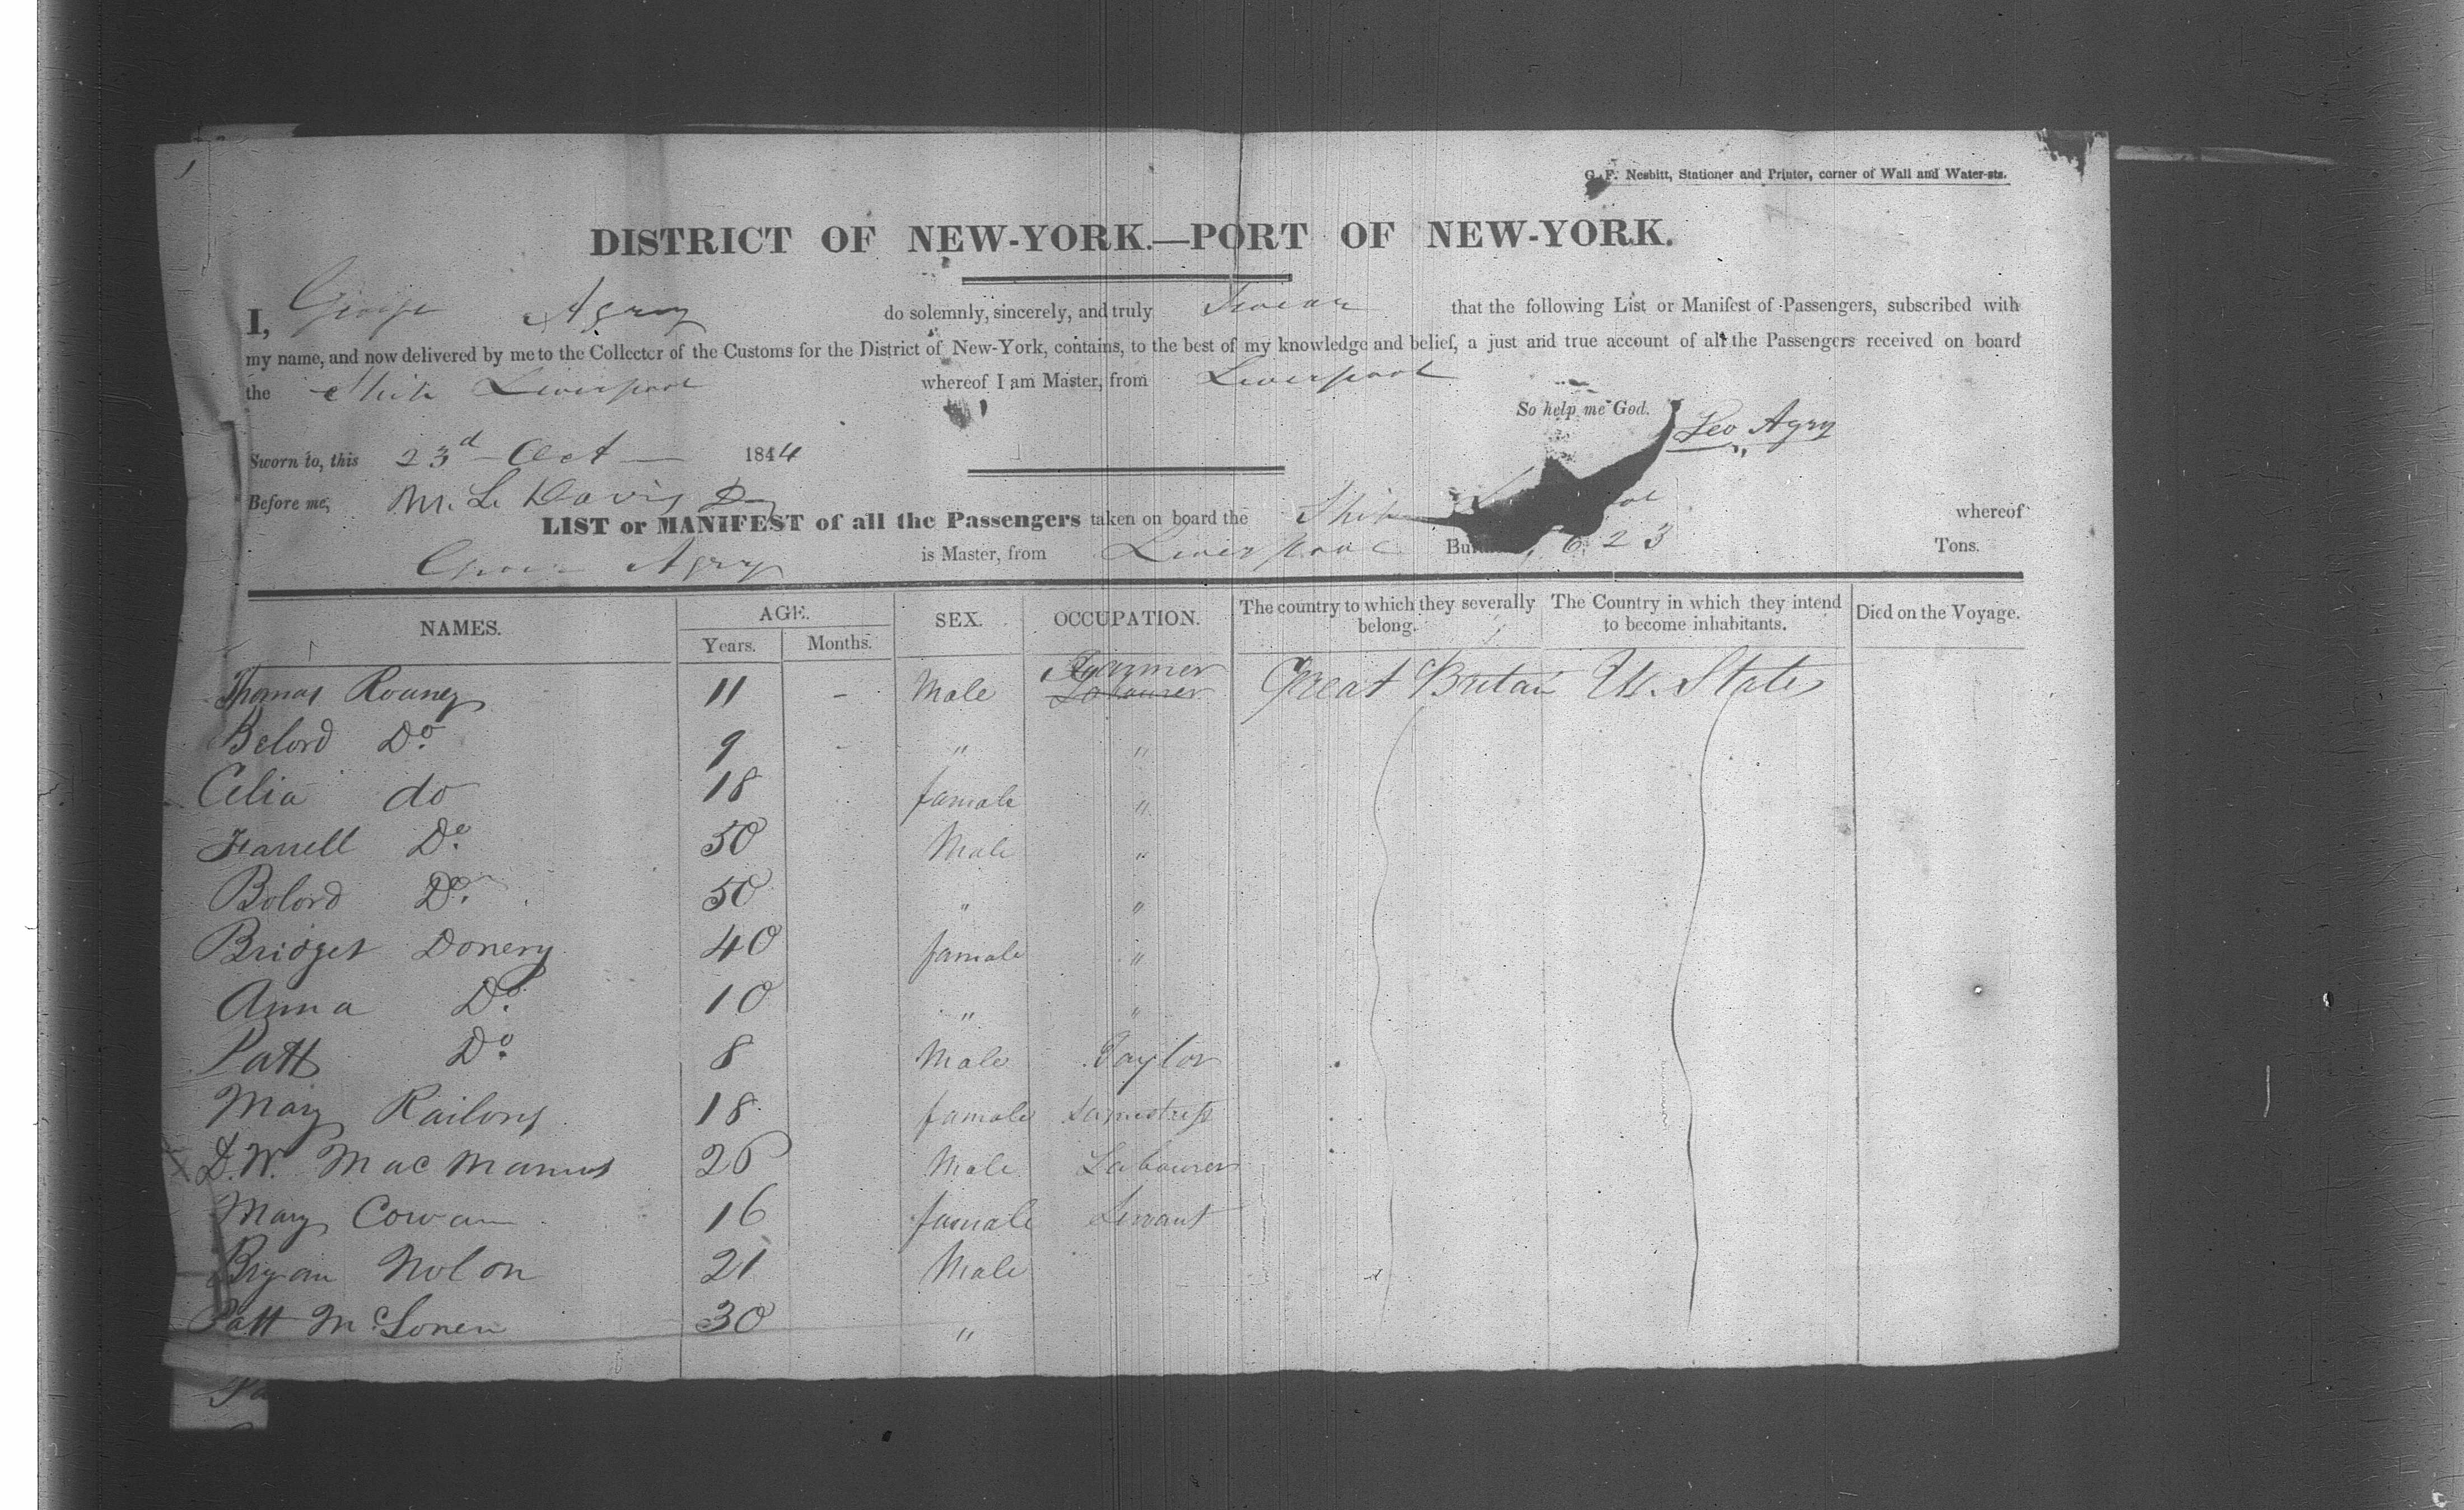 1
G. F. Nesbitt, Stationer and Printer, corner of Wall and Water-sts.
DISTRICT OF NEW-YORK.—PORT OF NEW-YORK.
I, George Agry do solemnly, sincerely, and truly Swear that the following List or Manifest of Passengers, subscribed with
my name, and now delivered by me to the Collector of the Customs for the District of New-York, contains, to the best of my knowledge and belief, a just and true account of all the Passengers received on board
the Ship Liverpool whereof I am Master, from Liverpool
So help me God. Geo Agry
Sworn to, this 23d Oct 1844
Before me, M. L. Davis
LIST or MANIFEST of all the Passengers taken on board the Ship whereof
Agry is Master, from Liverpool 623 Tons.
NAMES. AGE. Years. Months. SEX. OCCUPATION. The country to which they severally belong. The Country in which they intend to become inhabitants. Died on the Voyage.
Thomas Rouney 11 - Male Farmer Labourer Great Britain U. States
Belord Do. 9 - " "
Celia do 18 famale "
Farrell Do. 50 Male "
Bolord Do. 50 " "
Bridget Donery 40 famale "
Anna Do. 10 " "
Patt Do. 8 Male Taylor
Mary Railony 18 famale
D. W. MacManus 26 Male Labourer
Mary Cowan 16 famale Servant
Bryan Nolon 21 Male
Patt 30 "